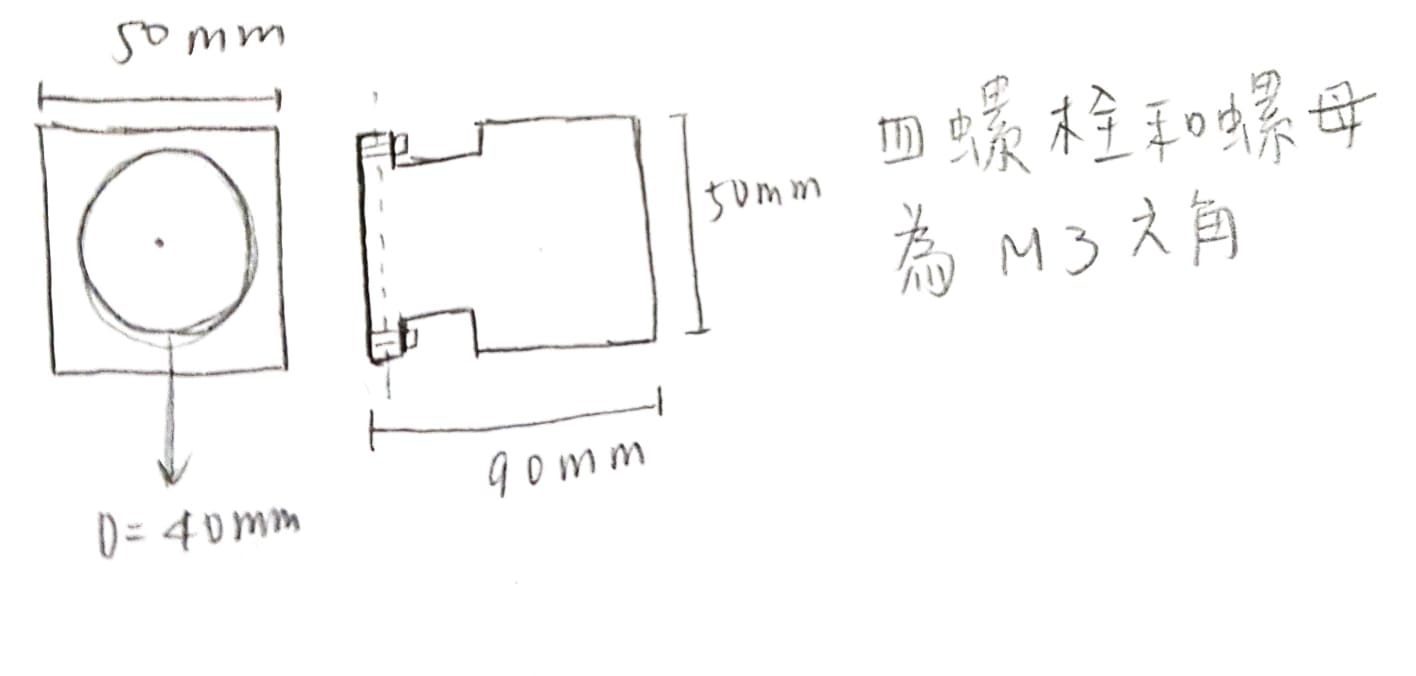 50mm
50mm
90mm
D=40mm
四螺栓和螺母
為 M3 六角